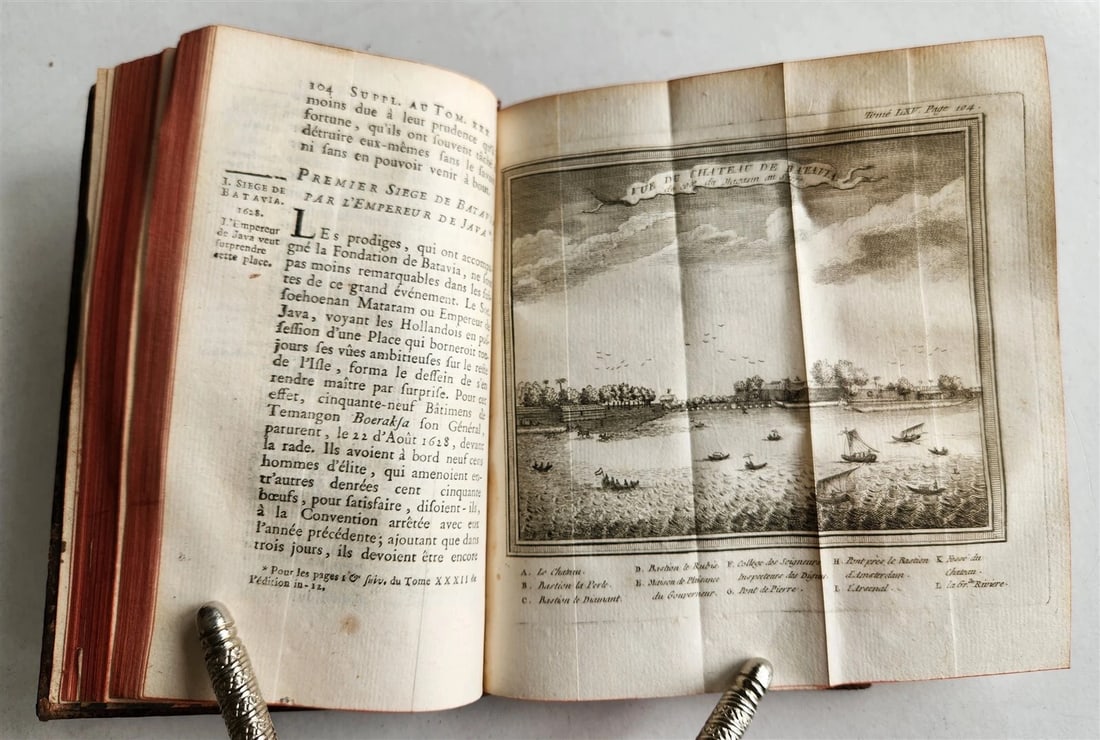 104 SUPPL. AU TOM.
moins due à leur prudence
fortune, qu'ils ont souvent
détruire eux-mêmes sans le
ni sans en pouvoir venir à bout.
PREMIER SIEGE DE
PAR L'EMPEREUR DE JAVA*
I. SIEGE DE
BATAVIA.
1628.
L'Empereur
de Java veut
surprendre
cette place.
LEs prodiges, qui ont
gné la Fondation de Batavia, ne
pas moins remarquables dans les
tes de ce grand événement. Le
soehoenan Mataram ou Empereur de
Java, voyant les Hollandois en
session d'une Place qui borneroit
jours ses vûes ambitieuses sur le reste
de l'Isle, forma le dessein de s'en
rendre maître par surprise. Pour cet
effet, cinquante-neuf Bâtimens de
Temangon Boeraksa son Général,
parurent, le 22 d'Août 1628, devant
la rade. Ils avoient à bord neuf cens
hommes d'élite, qui amenoient en-
tr'autres denrées cent cinquante
bœufs, pour satisfaire, disoient-ils,
à la Convention arrêtée avec eux
l'année précédente; ajoutant que dans
trois jours, ils devoient être encore
* Pour les pages 1 & suiv. du Tome XXXII de
l'édition in-12.
Tome LXV. Page 104.
VUE DU CHATEAU DE BATAVIA
A. Le Chateau.
B. Bastion la Perle.
C. Bastion le Diamant.
D. Bastion le Rubis.
E. Maison de Plaisance
du Gouverneur.
F. College des Seigneurs
Inspecteurs des Digues.
G. Pont de Pierre.
H. Pont près le Bastion
d'Amsterdam.
I. l'Arsenal.
K. Fossé du
Chateau.
L. la Gr.de Riviere.